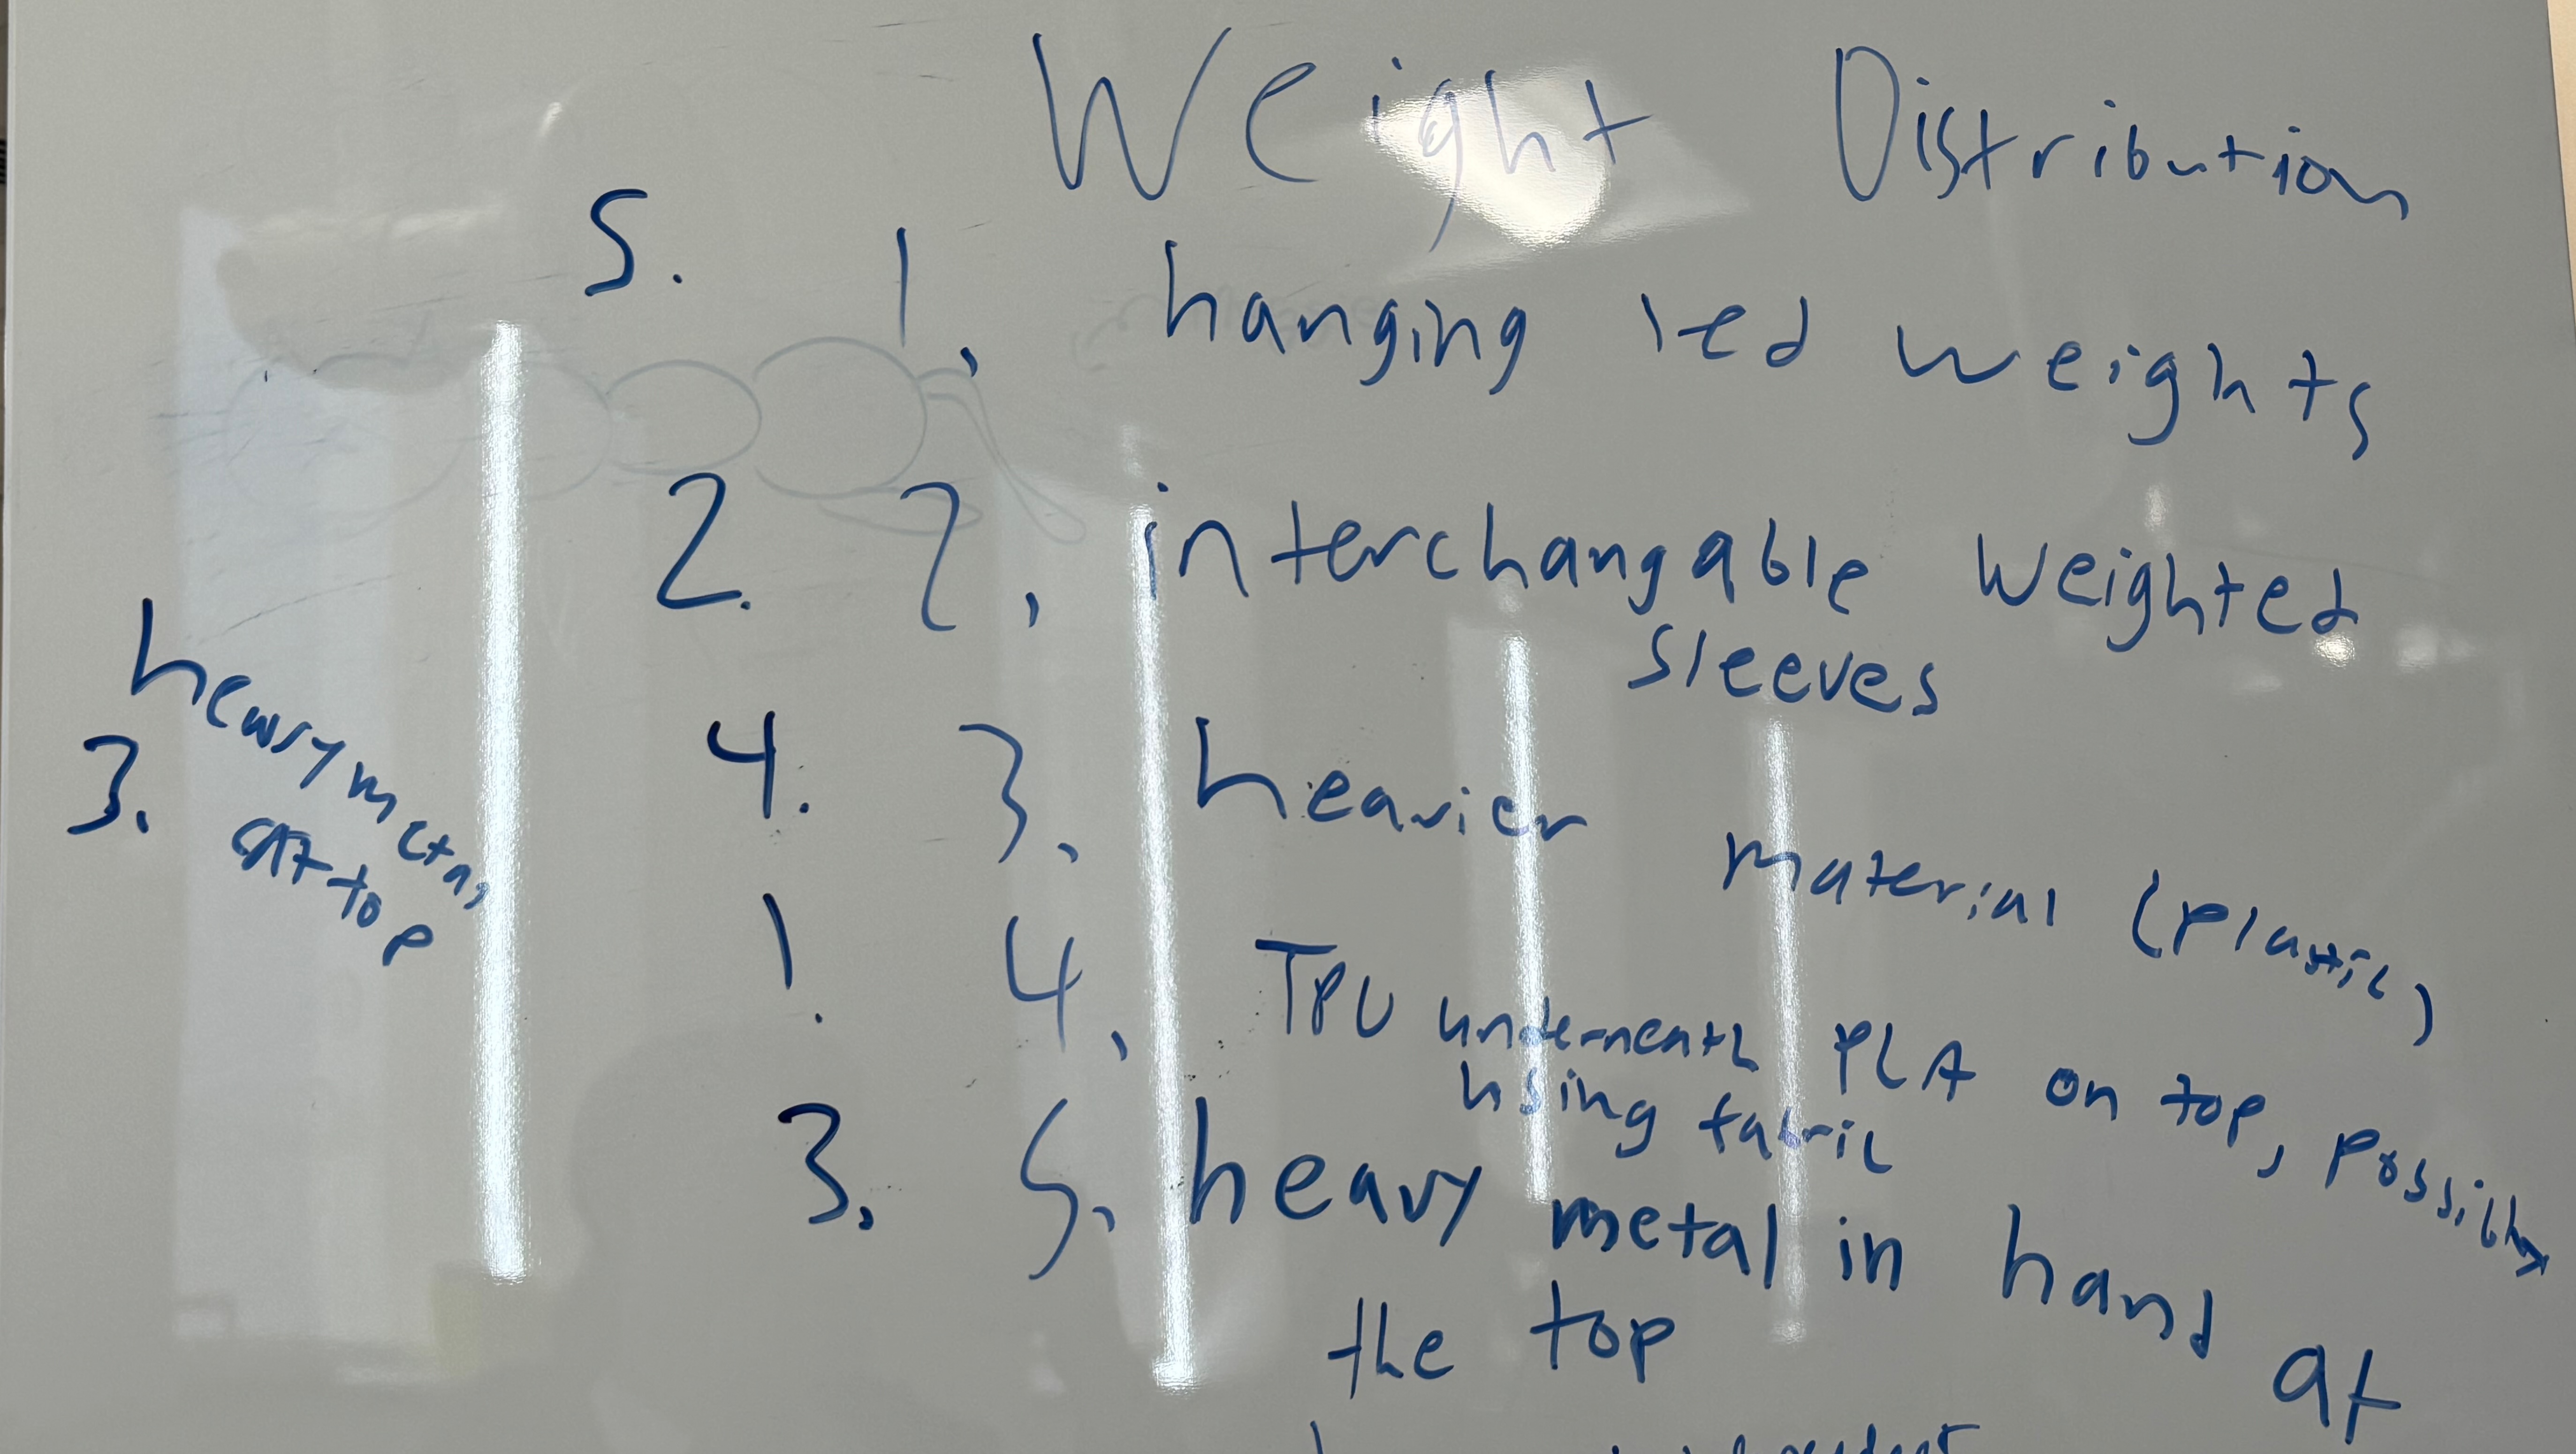 Weight Distribution
5. 1. hanging led weights
2. 2. interchangable weighted
sleeves
4. 3. heavier material (plastic)
1. 4. TPU underneath PLA on top, possibly
using fabric
3. 5. heavy metal in hand at
the top
3. heavy metal
at top